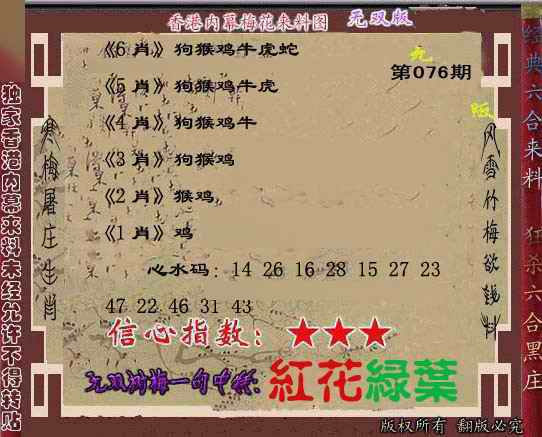 香港内幕梅花来料图 无双版
《6 肖》狗猴鸡牛虎蛇
无
第076期
《5 肖》狗猴鸡牛虎
版
《4 肖》狗猴鸡牛
《3 肖》狗猴鸡
《2 肖》猴鸡
《1 肖》鸡
心水码: 14 26 16 28 15 27 23
47 22 46 31 43
信心指数: ★★★
无双 梅一句中特:紅花綠葉
独家香港内幕来料未经允许不得转贴
寒梅屠庄生肖
风雪竹梅欲 料
经典六合来料 狂杀六合黑庄
版权所有 翻版必究